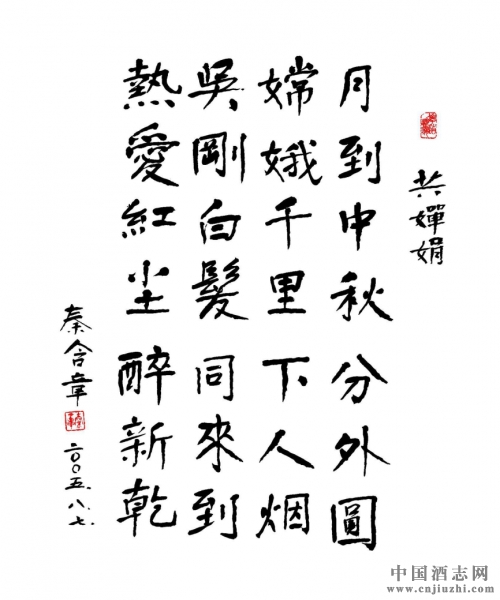 共嬋娟
月到中秋分外圓
嫦娥千里下人烟
吳剛白髮同來到
熱愛紅尘醉新乾
秦含章
二〇〇五.八.七.
中国酒志网
www.cnjiuzhi.com